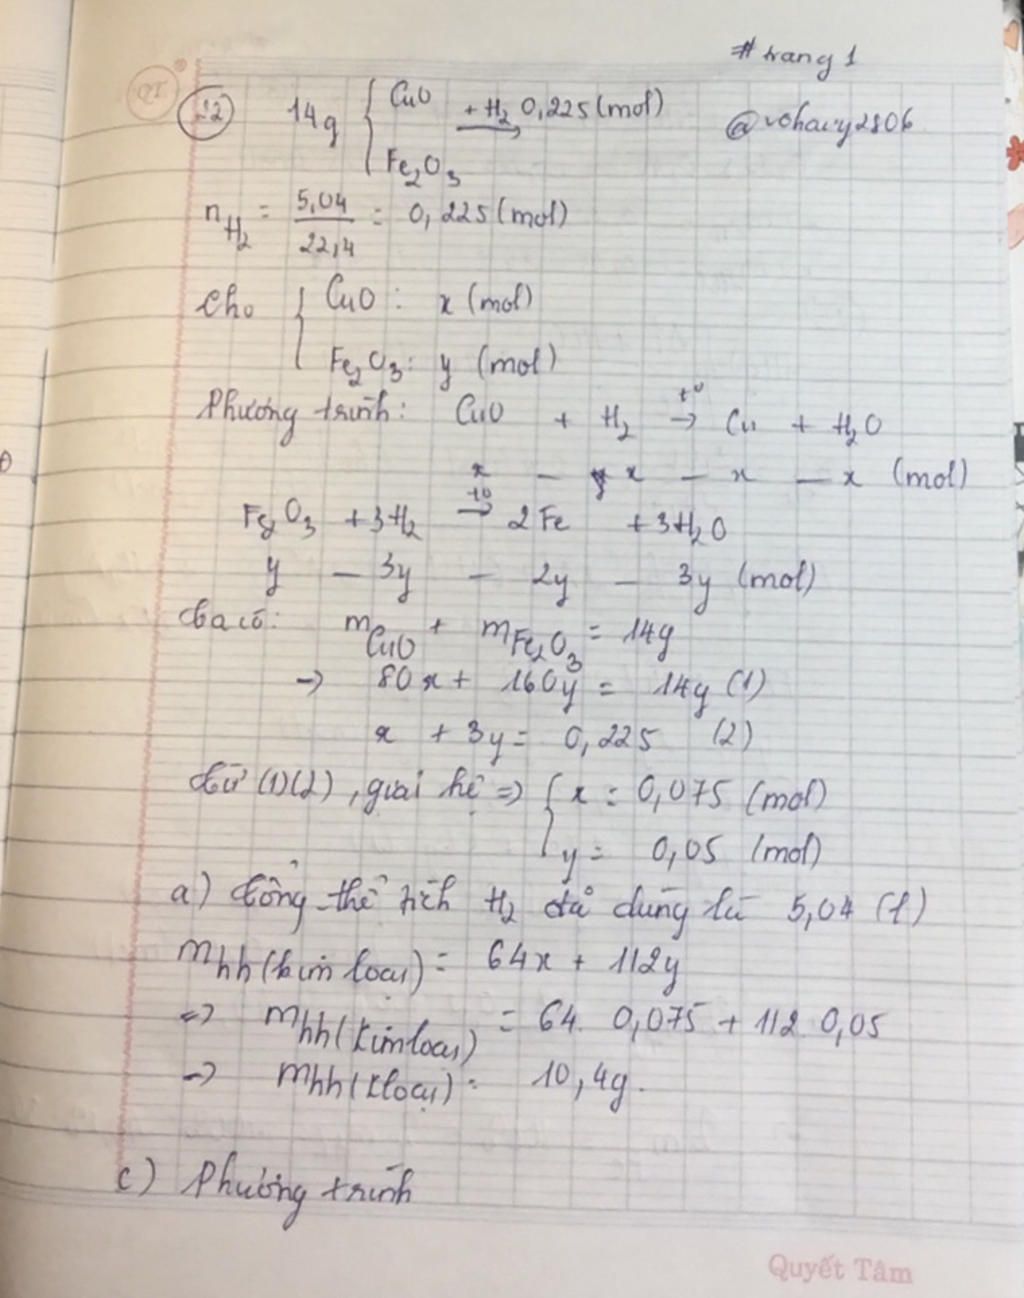 # trang 1
QT
22 14g { CuO + H₂ 0,225 (mol) @vohavy2806
Fe₂O₃
n H₂ = 5,04 / 22,4 = 0,225 (mol)
Cho { CuO : x (mol)
Fe₂O₃: y (mol)
Phương trình: CuO + H₂ →t⁰ Cu + H₂O
x – x – x – x (mol)
Fe₂O₃ + 3H₂ →t⁰ 2Fe + 3H₂O
y – 3y – 2y – 3y (mol)
Ta có: m CuO + m Fe₂O₃ = 14g
→ 80x + 160y = 14g (1)
x + 3y = 0,225 (2)
Từ (1)(2), giải hệ => { x = 0,075 (mol)
y = 0,05 (mol)
a) Tổng thể tích H₂ đã dùng là 5,04 (l)
m hh (kim loại) = 64x + 112y
=> m hh (kim loại) = 64. 0,075 + 112. 0,05
→ m hh (kloại) = 10,4g.
c) Phương trình
Quyết Tâm